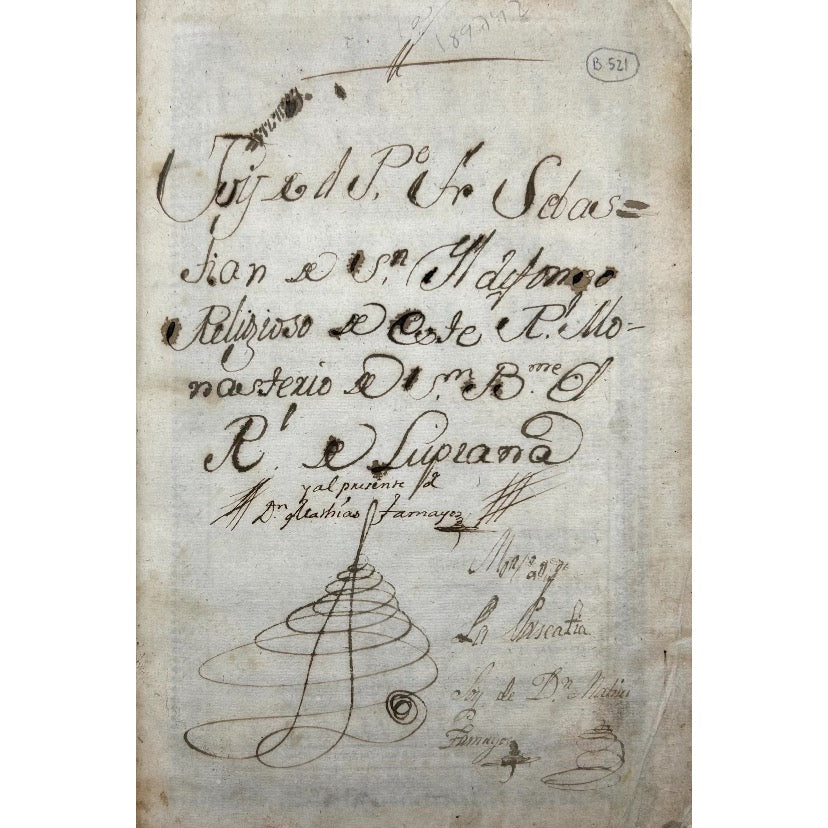 B-521
Soy de el P.e Fr Sebas=
tian de S.n Yldefonso
Religioso de este R.l Mo-
nasterio de S.n B.me el
R.l de Lupiana
y al presente de
D.n Mathias Tamayo
La
Soy de D.n Mathias
Tamayo